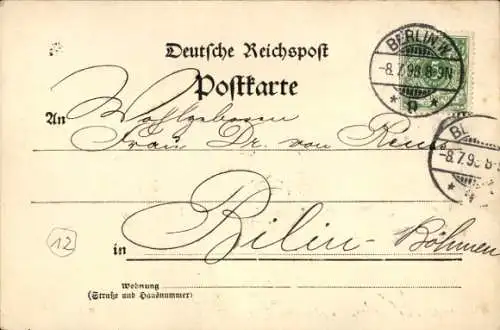 Deutsche Reichspost
Postkarte
BERLIN W.
-8.7.98 8-9N
* g *
-8.7.98 8-
An Wohlgeboren
Frau Dr. von Reuss
in Bilin - Böhmen
12
Wohnung
(Straße und Hausnummer)